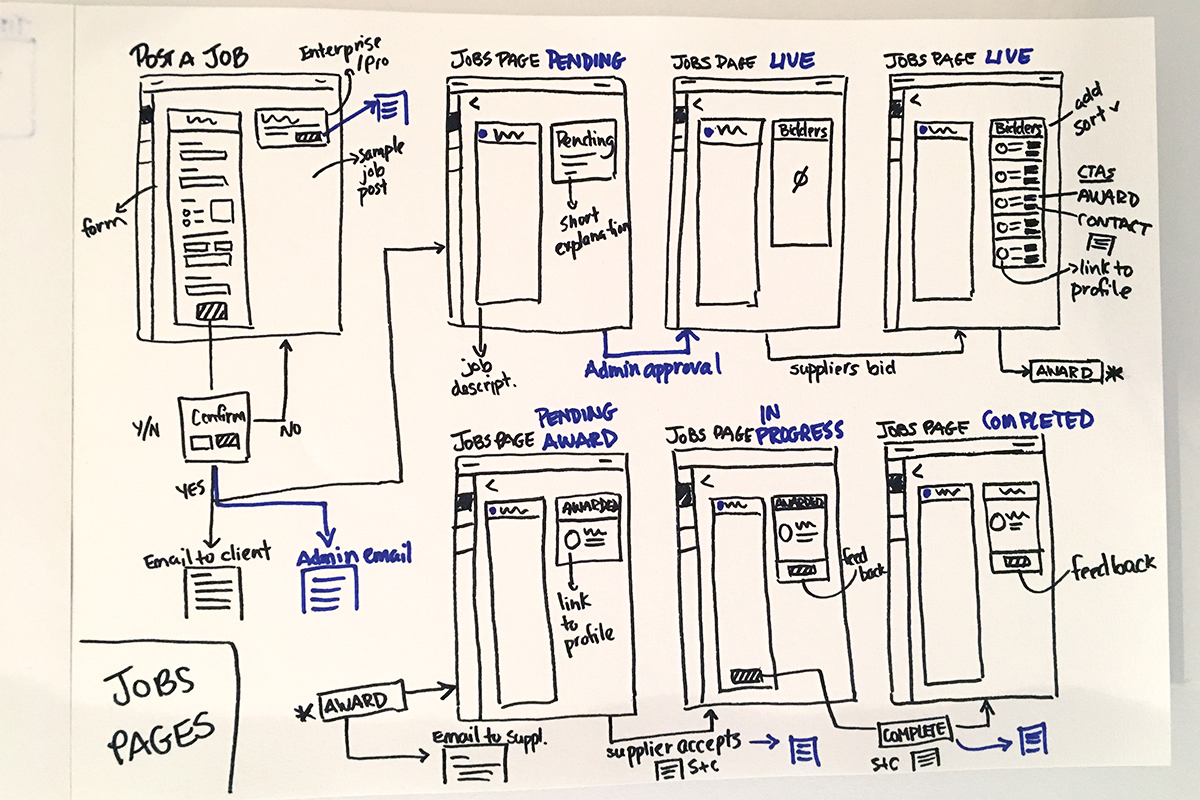 POST A JOB
Enterprise
/Pro
sample
job
post
form
Y/N
Confirm
NO
YES
Email to client
Admin email
JOBS PAGE PENDING
Pending
short
explanation
job
descript.
Admin approval
JOBS PAGE LIVE
Bidders
Ø
suppliers bid
JOBS PAGE LIVE
Bidders
add
sort
CTAs
AWARD
CONTACT
link to
profile
AWARD *
JOBS PAGE PENDING AWARD
AWARDED
link
to
profile
* AWARD
Email to suppl.
supplier accepts
S+C
JOBS PAGE IN PROGRESS
AWARDED
feed
back
COMPLETE
S+C
JOBS PAGE COMPLETED
feedback
JOBS
PAGES